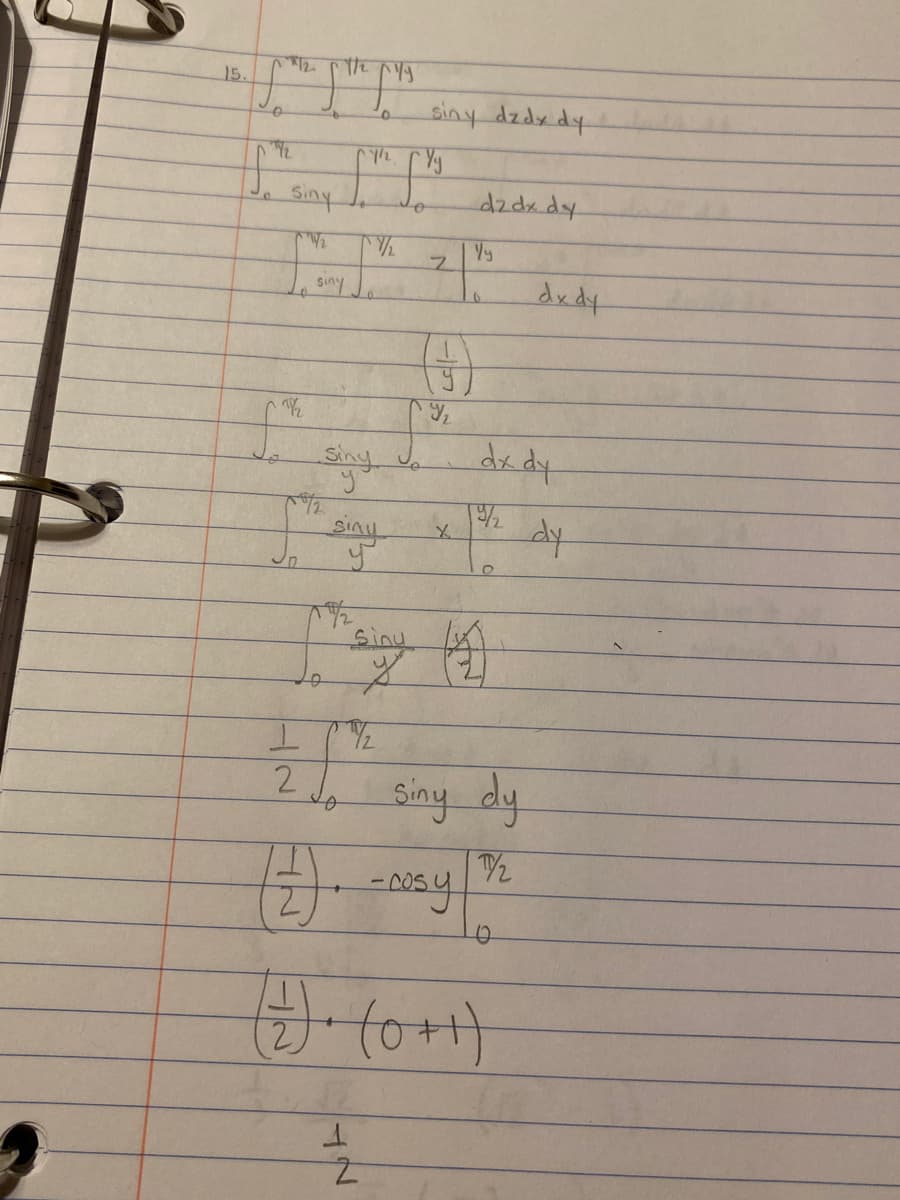 15. ∫₀^π/2 ∫₀^y/2 ∫₀^1/y siny dzdxdy
∫₀^π/2 siny ∫₀^y/2 ∫₀^1/y dzdxdy
∫₀^π/2 siny ∫₀^y/2 z |₀^1/y dxdy
(1/y)
∫₀^π/2 siny/y ∫₀^y/2 dx dy
∫₀^π/2 siny/y x |₀^y/2 dy
∫₀^π/2 siny/y (y/2)
1/2 ∫₀^π/2 siny dy
(1/2) · -cosy |₀^π/2
(1/2) · (0+1)
1/2